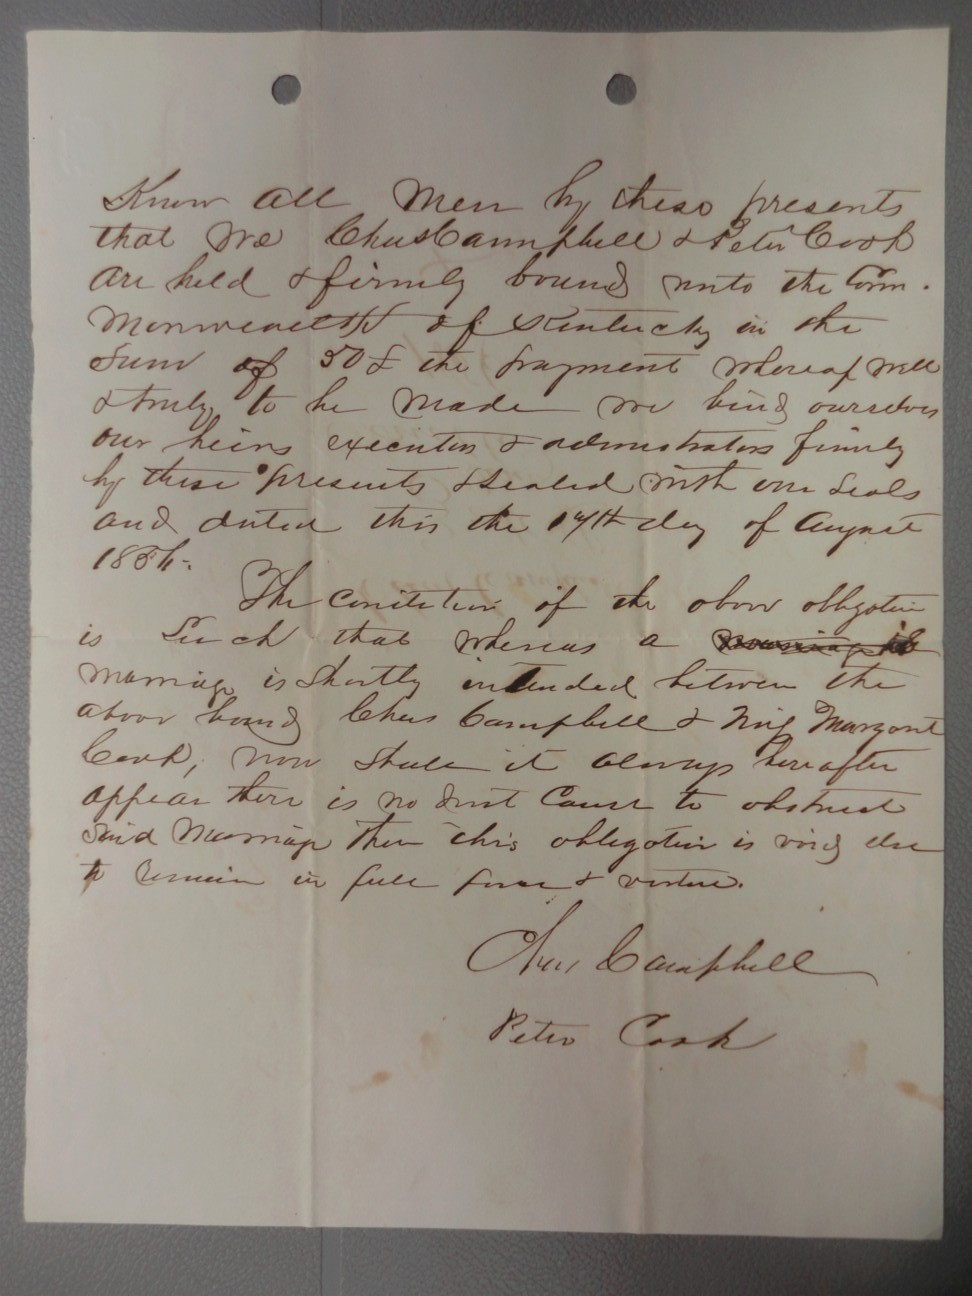 Know All Men by these presents
that We Chas Campbell & Peter Cook
are held & firmly bound unto the Com.
Monwealth of Kentucky in the
Sum of 50£ the payment whereof well
& truly to be made we bind ourselves
our heirs executors & administrators firmly
by these presents & Sealed with our Seals
and dated this the 17th day of August
The condition of the above obligation
is Such that whereas a
marriage is Shortly intended between the
above bound Chas Campbell & Miss Margaret
Cook, now Shall it always hereafter
appear there is no Just Cause to obstruct
said Marriage then this obligation is void else
to remain in full force & virtue.
Chas Campbell
Peter Cook